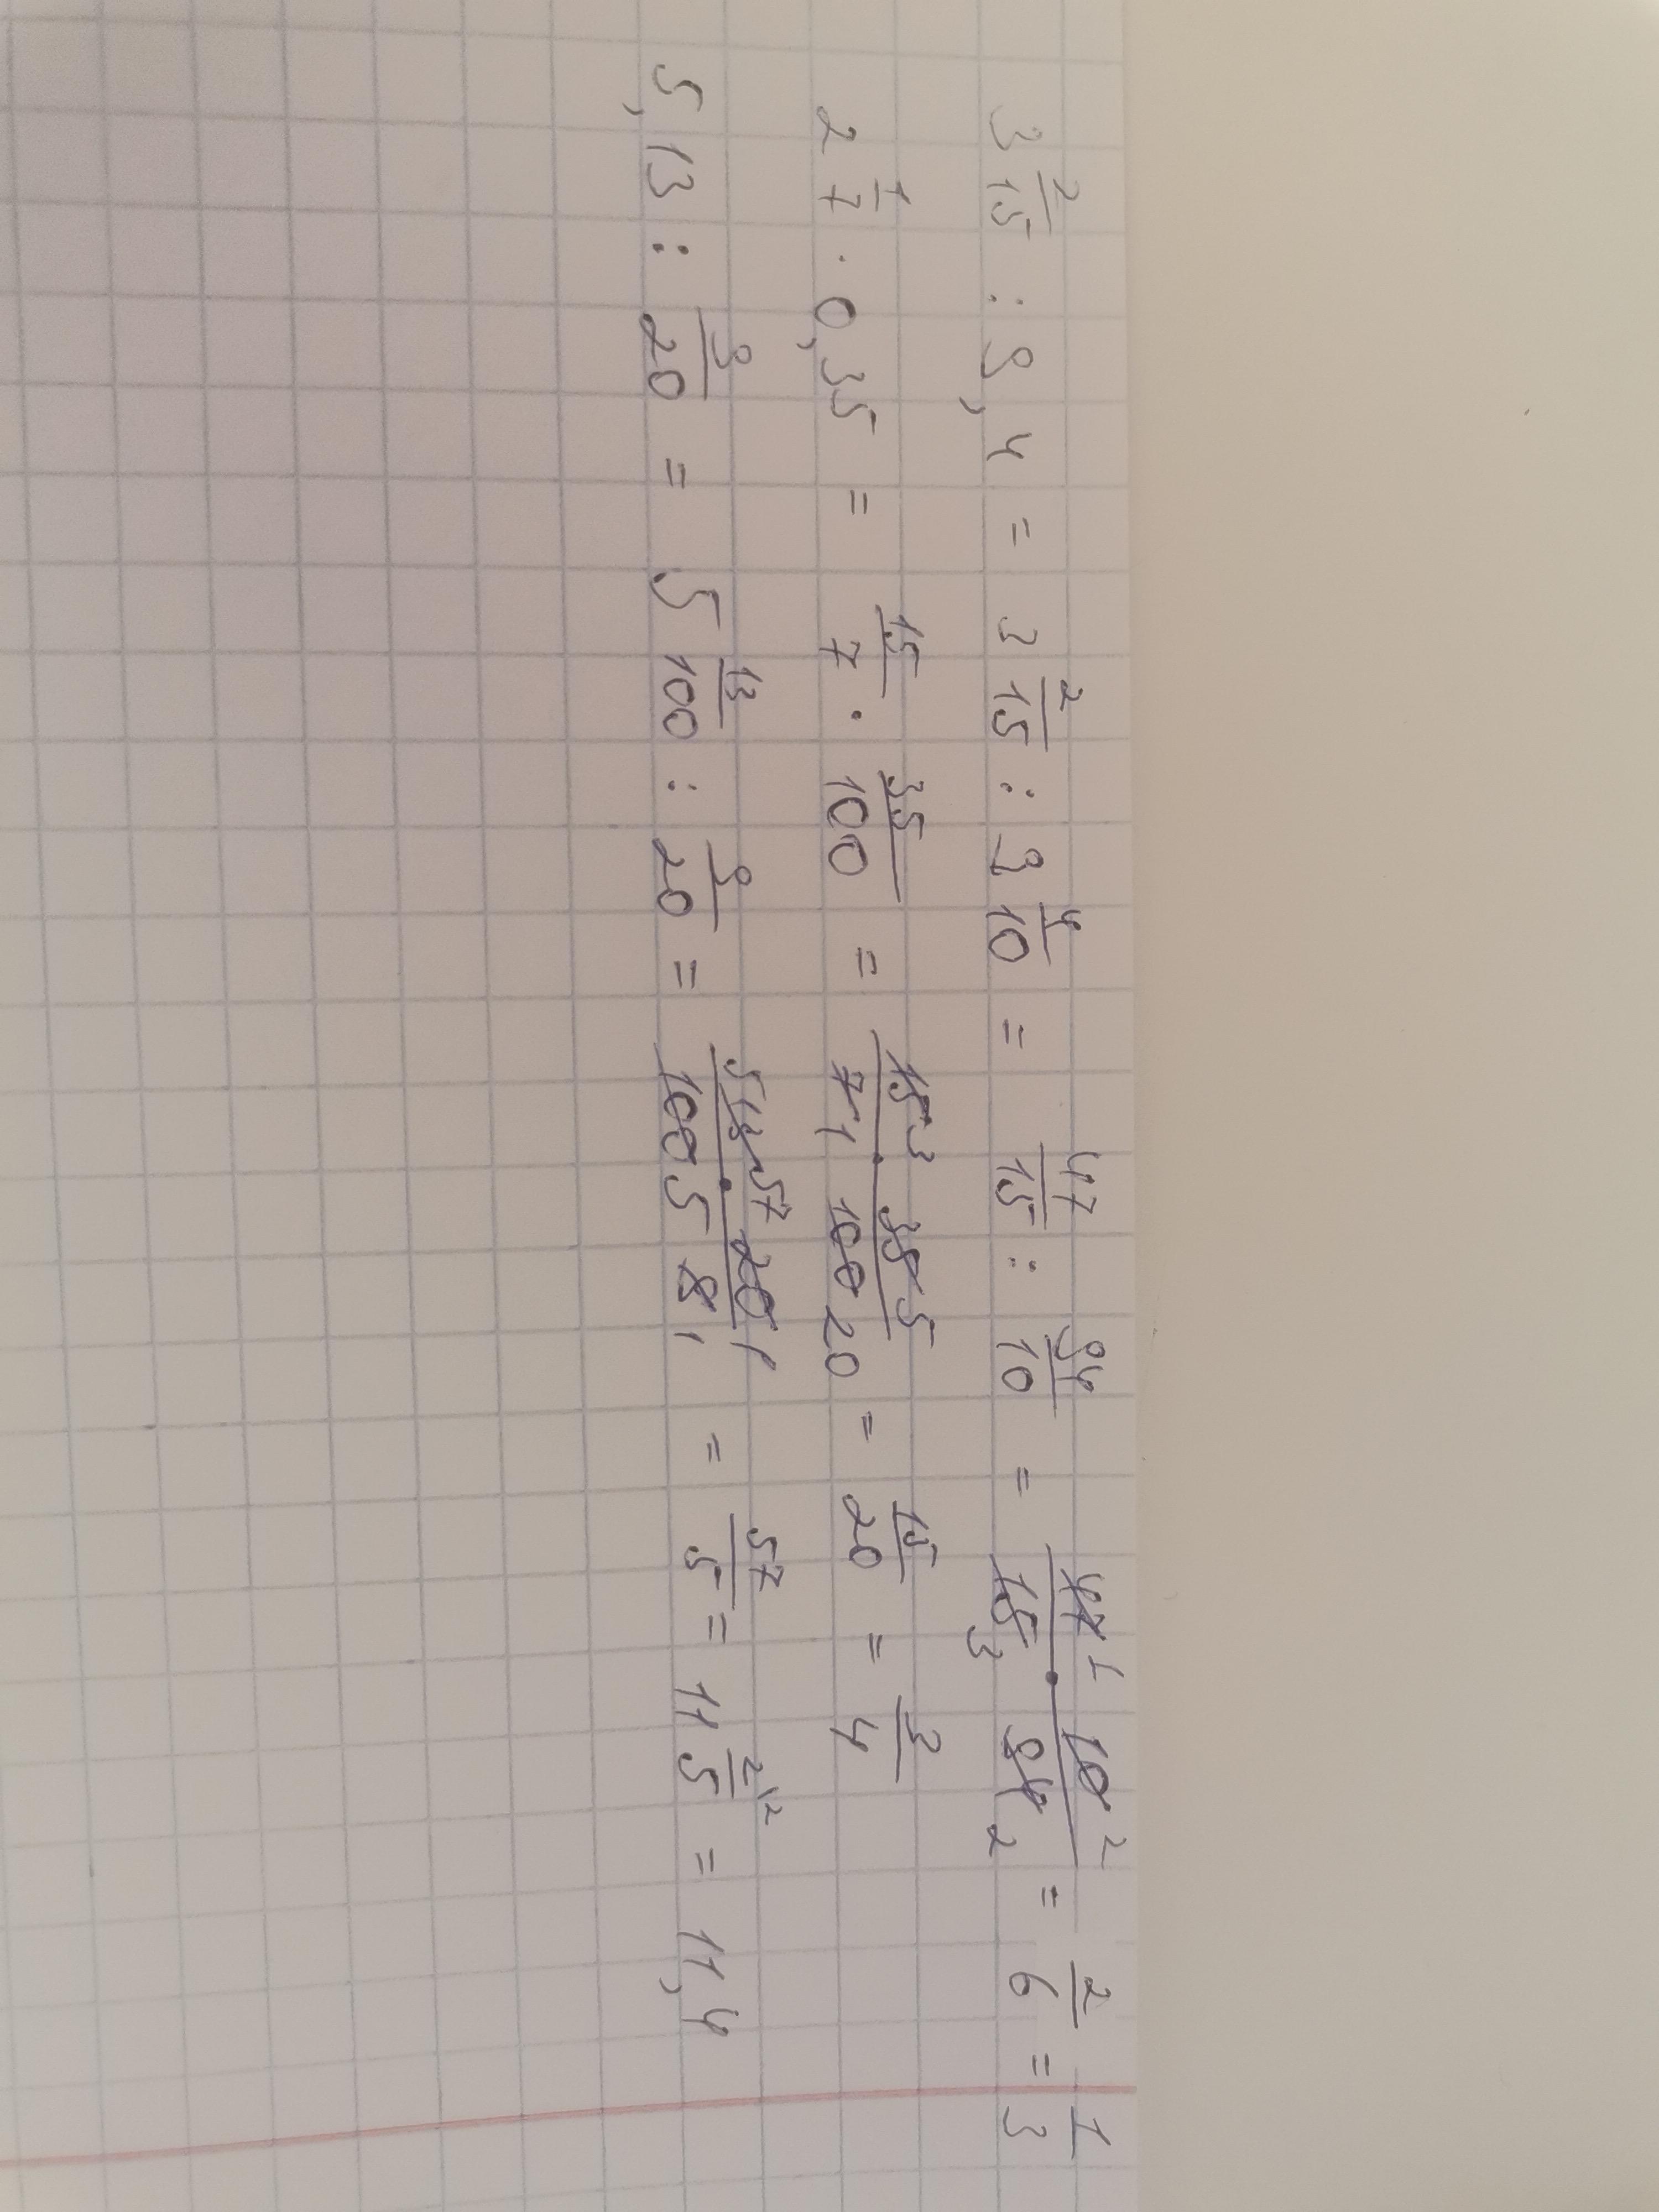 3 2/15 : 9,4 = 3 2/15 : 9 4/10 = 47/15 : 94/10 = 47 1 · 10 2 / 15 3 · 94 2 = 2/6 = 1/3
2 1/7 · 0,35 = 15/7 · 35/100 = 15 3 · 35 5 / 7 1 · 100 20 = 15/20 = 3/4
5,13 : 9/20 = 5 13/100 : 9/20 = 513 57 · 20 1 / 100 5 · 9 1 = 57/5 = 11 2/5 \2 = 11,4